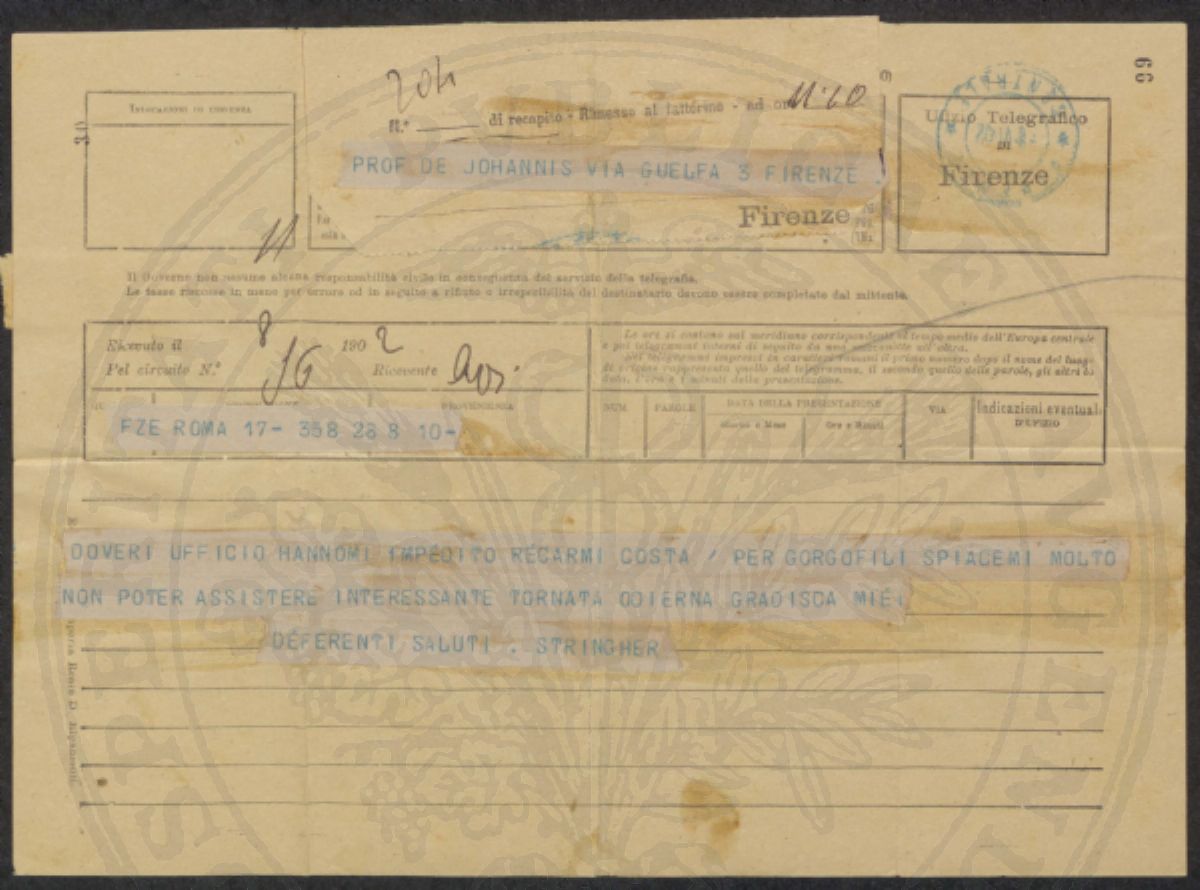 99
204
11.40
INDICAZIONI DI URGENZA
N.º di recapito - Rimesso al fattorino - ad ore
Ufizio Telegrafico
DI
Firenze
30
PROF DE JOHANNIS VIA GUELFA 3 FIRENZE
Firenze
11
Il Governo non assume alcuna responsabilità civile in conseguenza del servizio della telegrafia.
Le tasse riscosse in meno per errore od in seguito a rifiuto o irreperibilità del destinatario devono essere completate dal mittente.
Ricevuto il 8 1902
Pel circuito N.º 16 Ricevente
Le ore si contano sul meridiano corrispondente al tempo medio dell'Europa centrale
e pei telegrammi interni di seguito da una mezzanotte all'altra.
Nei telegrammi impressi in caratteri romani il primo numero dopo il nome del luogo
di origine rappresenta quello del telegramma, il secondo quello delle parole, gli altri la
data, l'ora e i minuti della presentazione.
PROVENIENZA
NUM PAROLE DATA DELLA PRESENTAZIONE VIA Indicazioni eventuali
Giorno e Mese Ore e Minuti D'UFIZIO
FZE ROMA 17- 358 28 8 10-
DOVERI UFFICIO HANNOMI IMPEDITO RECARMI COSTA / PER GORGOFILI SPIACEMI MOLTO
NON POTER ASSISTERE INTERESSANTE TORNATA ODIERNA GRADISCA MIEI
DEFERENTI SALUTI . STRINGHER